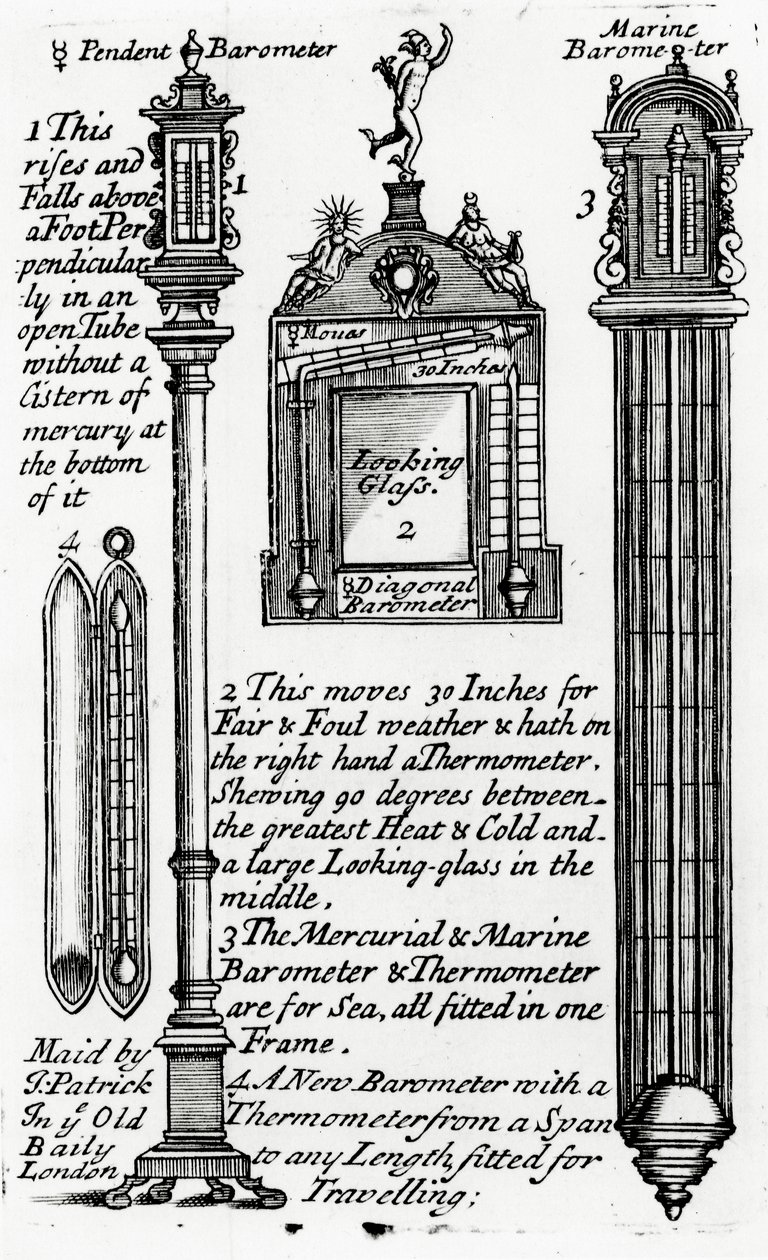 ☿ Pendent Barometer
Marine
Barome-ter
1 This
rises and
Falls above
a Foot Per
pendicular
ly in an
open Tube
without a
Cistern of
mercury at
the bottom
of it
1
3
☿ Moves
30 Inches
Looking
Glass.
2
☿ Diagonal
Barometer
4
2 This moves 30 Inches for
Fair & Foul weather & hath on
the right hand a Thermometer,
Shewing 90 degrees between
the greatest Heat & Cold and
a large Looking-glass in the
middle,
3 The Mercurial & Marine
Barometer & Thermometer
are for Sea, all fitted in one
Frame.
4 A New Barometer with a
Thermometer from a Span
to any Length, fitted for
Travelling;
Maid by
J: Patrick
In yᵉ Old
Baily
London